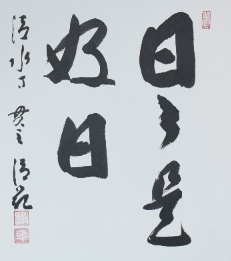 日々是
好日
清水寺 貫主 清範